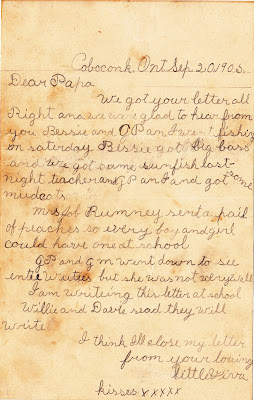 Coboconk, Ont Sep. 20, 1903.
Dear Papa
We got your letter all
Right and we were glad to hear from
you Bessie and G P an I went fishing
on saturday Bessie got big bass
and we got some sunfish last
night teacher and G P an I and got some
mudcats
mrs Job Rumney sent a pail
of peaches so every boy and girl
could have one at school
G P and g m went down to see
but she was not very well
I am writeing this letter at school
Willie and Dave sead they will
write
I think Ill close my letter
from your loving
little
kisses x x x x x